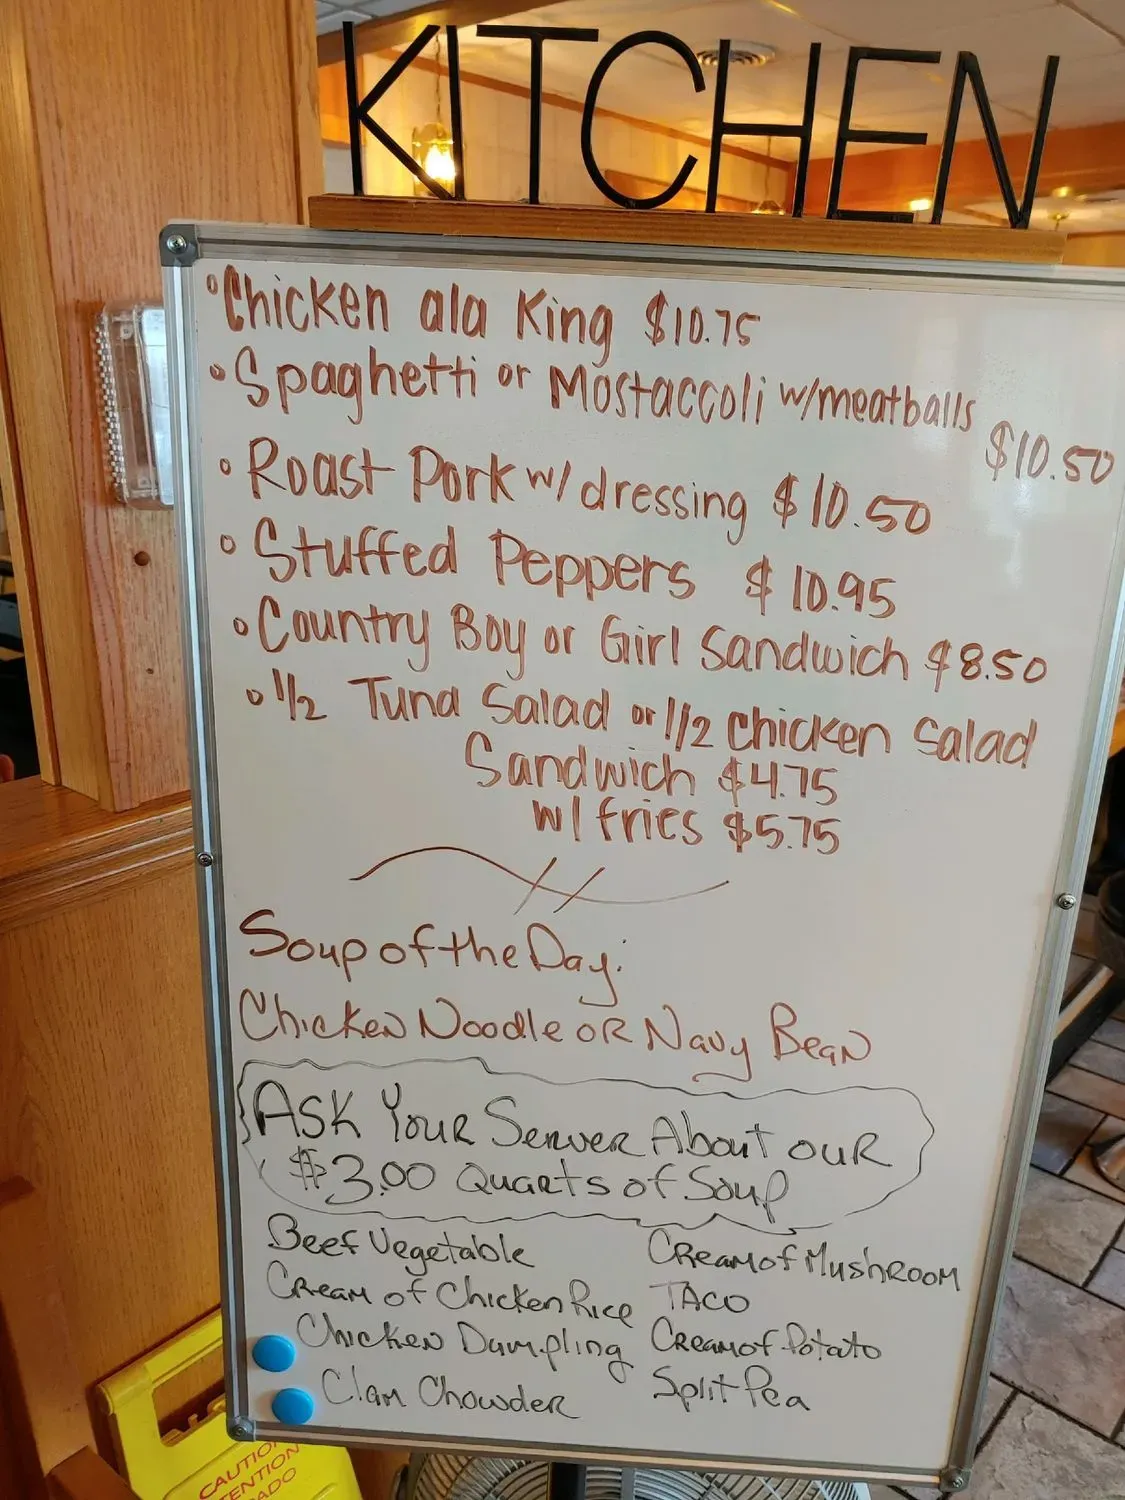 KITCHEN
Chicken ala King $10.75
Spaghetti or Mostaccoli w/meatballs
$10.50
Roast Pork w/ dressing $10.50
Stuffed Peppers $10.95
Country Boy or Girl Sandwich $8.50
1/2 Tuna Salad or 1/2 Chicken Salad
Sandwich $4.75
w/ fries $5.75
Soup of the Day:
Chicken Noodle or Navy Bean
Ask Your Server About our
$3.00 Quarts of Soup
Beef Vegetable
Cream of Chicken Rice
Chicken Dumpling
Clam Chowder
Cream of Mushroom
TACO
Cream of Potato
Split Pea
CAUTION